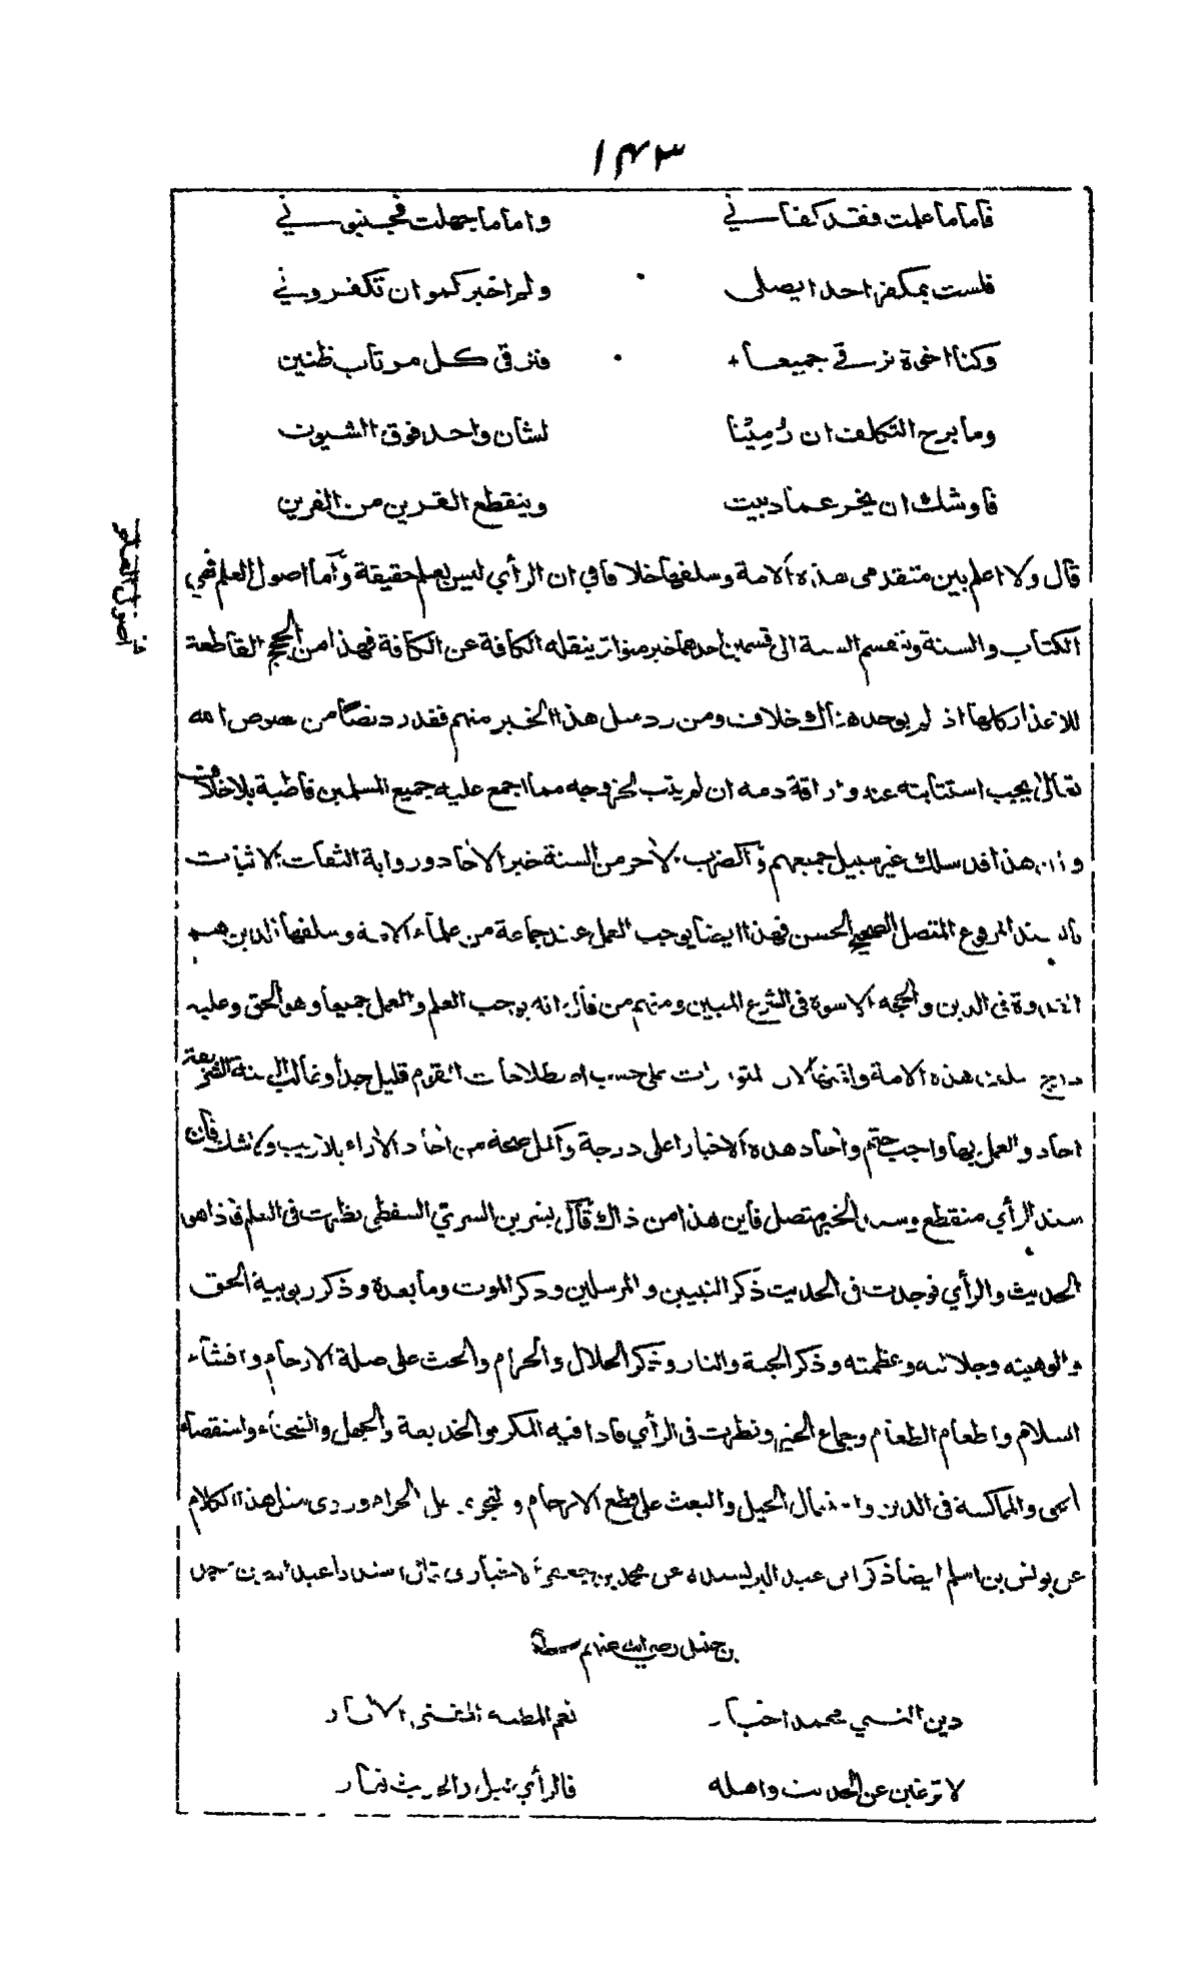 ١٤٣
فاما ما علمت فقد كفاني واما ما جهلت فجنبوني
فلست بمكفر احدا يصلي ولم اخبركمو ان تكفروني
وكنا اخوة نرمي جميعا فنرمي كل مرتاب ظنين
وما برح التكلف ان رُمِيْنا لشان واحد فوق الشيون
فاوشك ان يخر عماد بيت وينقطع القرين من القرين
قال ولا اعلم بين متقدمي هذه الامة وسلفها خلافا في ان الرأي ليس بعلم حقيقة وأما اصول العلم فهي
اصول العلم
الكتاب والسنة وتنقسم السنة الى قسمين احدهما خبر متواتر ينقله الكافة عن الكافة فهذا من الحجج القاطعة
للاعذار كلها اذ لم يوجد هناك خلاف ومن رد مثل هذا الخبر منهم فقد رد نصا من نصوص الله
تعالى يجب استتابته عنه واراقة دمه ان لم يتب لخروجه مما اجمع عليه جميع المسلمين قاطبة بلا خلاف
وان هذا قد سلك غير سبيل جميعهم والضرب الآخر من السنة خبر الآحاد ورواية الثقات الاثبات
بالسند المرفوع المتصل الصحيح الحسن فهذا ايضا يوجب العمل عند جماعة من علماء الامة وسلفها الذين هم
القدوة في الدين والحجة الاسوة في الشرع المبين ومنهم من قال انه يوجب العلم والعمل جميعا وهو الحق وعليه
درج سلف هذه الامة وائمتها لان المتواترات على حسب اصطلاحات القوم قليل جدا وغالب السنة الشريعة
احاد والعمل بها واجب حتم واحاد هذه الاخبار اعلى درجة وأكمل صحة من احاد الآراء بلا ريب ولا شك فان
سند الرأي منقطع وسند الخبر متصل فاين هذا من ذاك قال بشر بن السري السقطي نظرت في العلم فاذا هو
الحديث والرأي فوجدت في الحديث ذكر النبيين والمرسلين وذكر الموت وما بعده وذكر ربوبية الحق
والوهيته وجلاله وعظمته وذكر الجنة والنار وذكر الحلال والحرام والحث على صلة الارحام وافشاء
السلام واطعام الطعام وجماع الخير ونظرت في الرأي فاذا فيه المكر والخديعة والجهل والشحناء واستقصاء
الحق والمماكسة في الدين واستعمال الحيل والبعث على قطع الارحام والتجرء على الحرام وروى مثل هذا الكلام
عن يونس بن اسلم ايضا ذكر ابن عبد البر بسنده عن محمد بن جعفر الاخباري قال انشدنا عبد الله بن احمد
بن حنبل رضي الله عنهم
دين النبي محمد اخبار نعم المطية للفتى الآثار
لا ترغبن عن الحديث واهله فالرأي ليل والحديث نهار